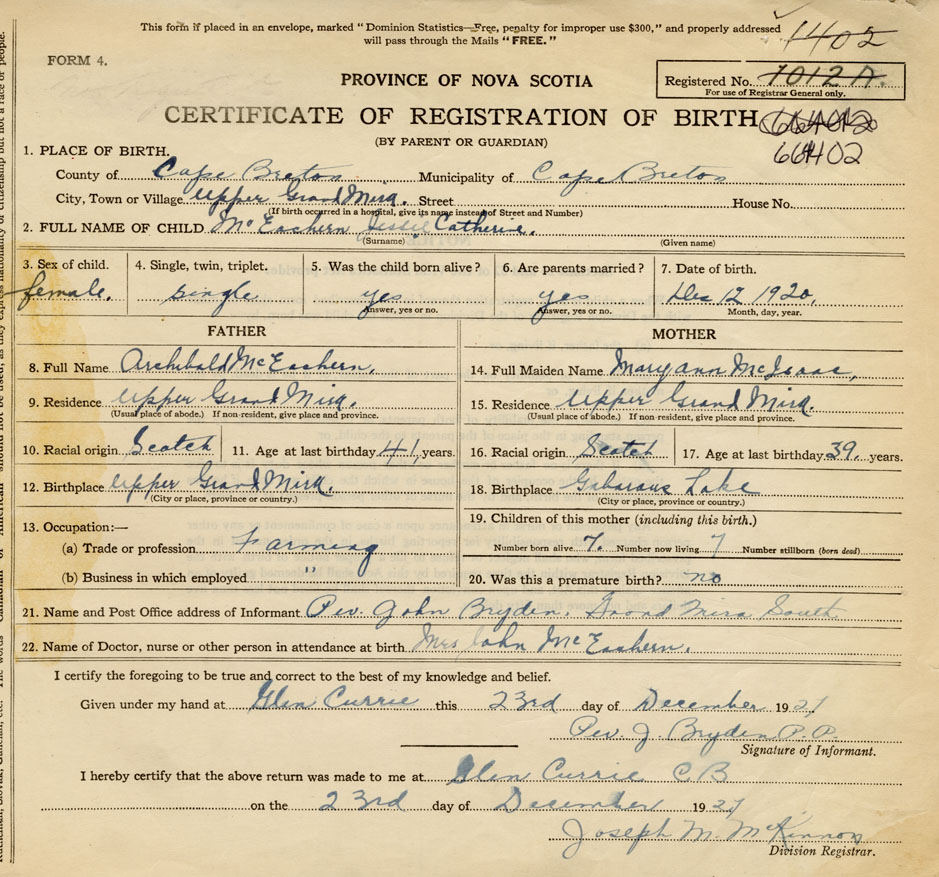 This form if placed in an envelope, marked "Dominion Statistics—Free, penalty for improper use $300," and properly addressed
will pass through the Mails "FREE."
1402
FORM 4.
PROVINCE OF NOVA SCOTIA
Registered No. 1012 A.
For use of Registrar General only.
CERTIFICATE OF REGISTRATION OF BIRTH
(BY PARENT OR GUARDIAN)
66402
1. PLACE OF BIRTH.
County of Cape Breton Municipality of Cape Breton
City, Town or Village Upper Grand Mira. Street House No.
(If birth occurred in a hospital, give its name instead of Street and Number)
2. FULL NAME OF CHILD McEachern Jessie Catherine.
(Surname) (Given name)
3. Sex of child. 4. Single, twin, triplet. 5. Was the child born alive? 6. Are parents married? 7. Date of birth.
female. single yes yes Dec 12 1920.
Answer, yes or no. Answer, yes or no. Month, day, year.
FATHER MOTHER
8. Full Name Archibald McEachern. 14. Full Maiden Name Mary ann McIsaac,
9. Residence Upper Grand Mira. 15. Residence Upper Grand Mira.
(Usual place of abode.) If non-resident, give place and province. (Usual place of abode.) If non-resident, give place and province.
10. Racial origin Scotch 11. Age at last birthday 41, years. 16. Racial origin Scotch 17. Age at last birthday 39. years.
12. Birthplace Upper Grand Mira. 18. Birthplace Gabarous Lake
(City or place, province or country.) (City or place, province or country.)
13. Occupation:— 19. Children of this mother (including this birth.)
(a) Trade or profession Farming Number born alive 7. Number now living 7 Number stillborn (born dead)
(b) Business in which employed " 20. Was this a premature birth? no
21. Name and Post Office address of Informant Rev. John Bryden. Grand Mira South
22. Name of Doctor, nurse or other person in attendance at birth Mrs John McEachern.
I certify the foregoing to be true and correct to the best of my knowledge and belief.
Given under my hand at Glen Currie this 23rd day of December 192
Rev. J. Bryden P.P.
Signature of Informant.
I hereby certify that the above return was made to me at Glen Currie C B
on the 23rd day of December 192
Joseph M. McKinnon
Division Registrar.